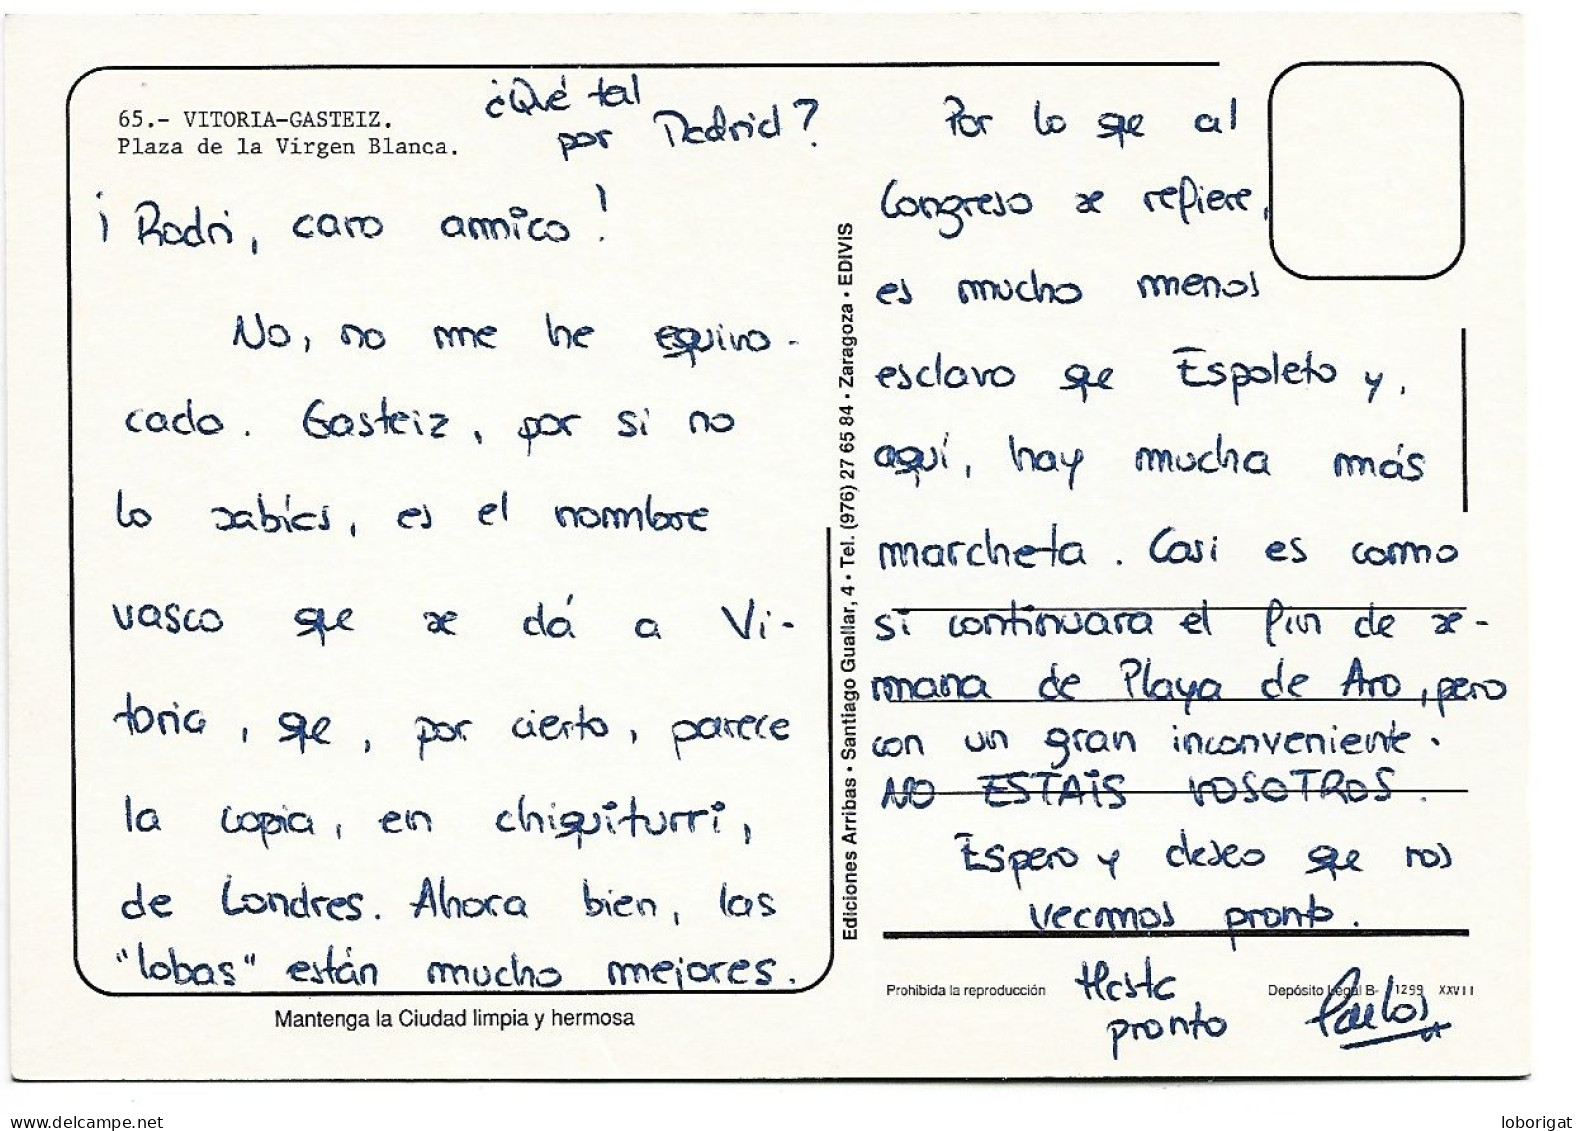 65.- VITORIA-GASTEIZ.
Plaza de la Virgen Blanca.
¿Qué tal
por Madrid?
¡Rodri, caro amico!
No, no me he equivo-
cado. Gasteiz, por si no
lo sabíes, es el nombre
vasco que se dá a Vi-
toria, que, por cierto, parece
la copia, en chiquiturri,
de Londres. Ahora bien, las
"lobas" están mucho mejores.
Mantenga la Ciudad limpia y hermosa
Ediciones Arribas • Santiago Guallar, 4 • Tel. (976) 27 65 84 • Zaragoza • EDIVIS
Por lo que al
Congreso se refiere,
es mucho menos
esclavo que Espoleto y,
aquí, hay mucha más
marcheta. Casi es como
si continuara el fin de se-
mana de Playa de Aro, pero
con un gran inconveniente.
NO ESTAIS VOSOTROS.
Espero y deseo que nos
vecmos pronto.
Hasta
pronto
Prohibida la reproducción
Depósito Legal B- 1299 XXVII
www.delcampe.net
loborigat